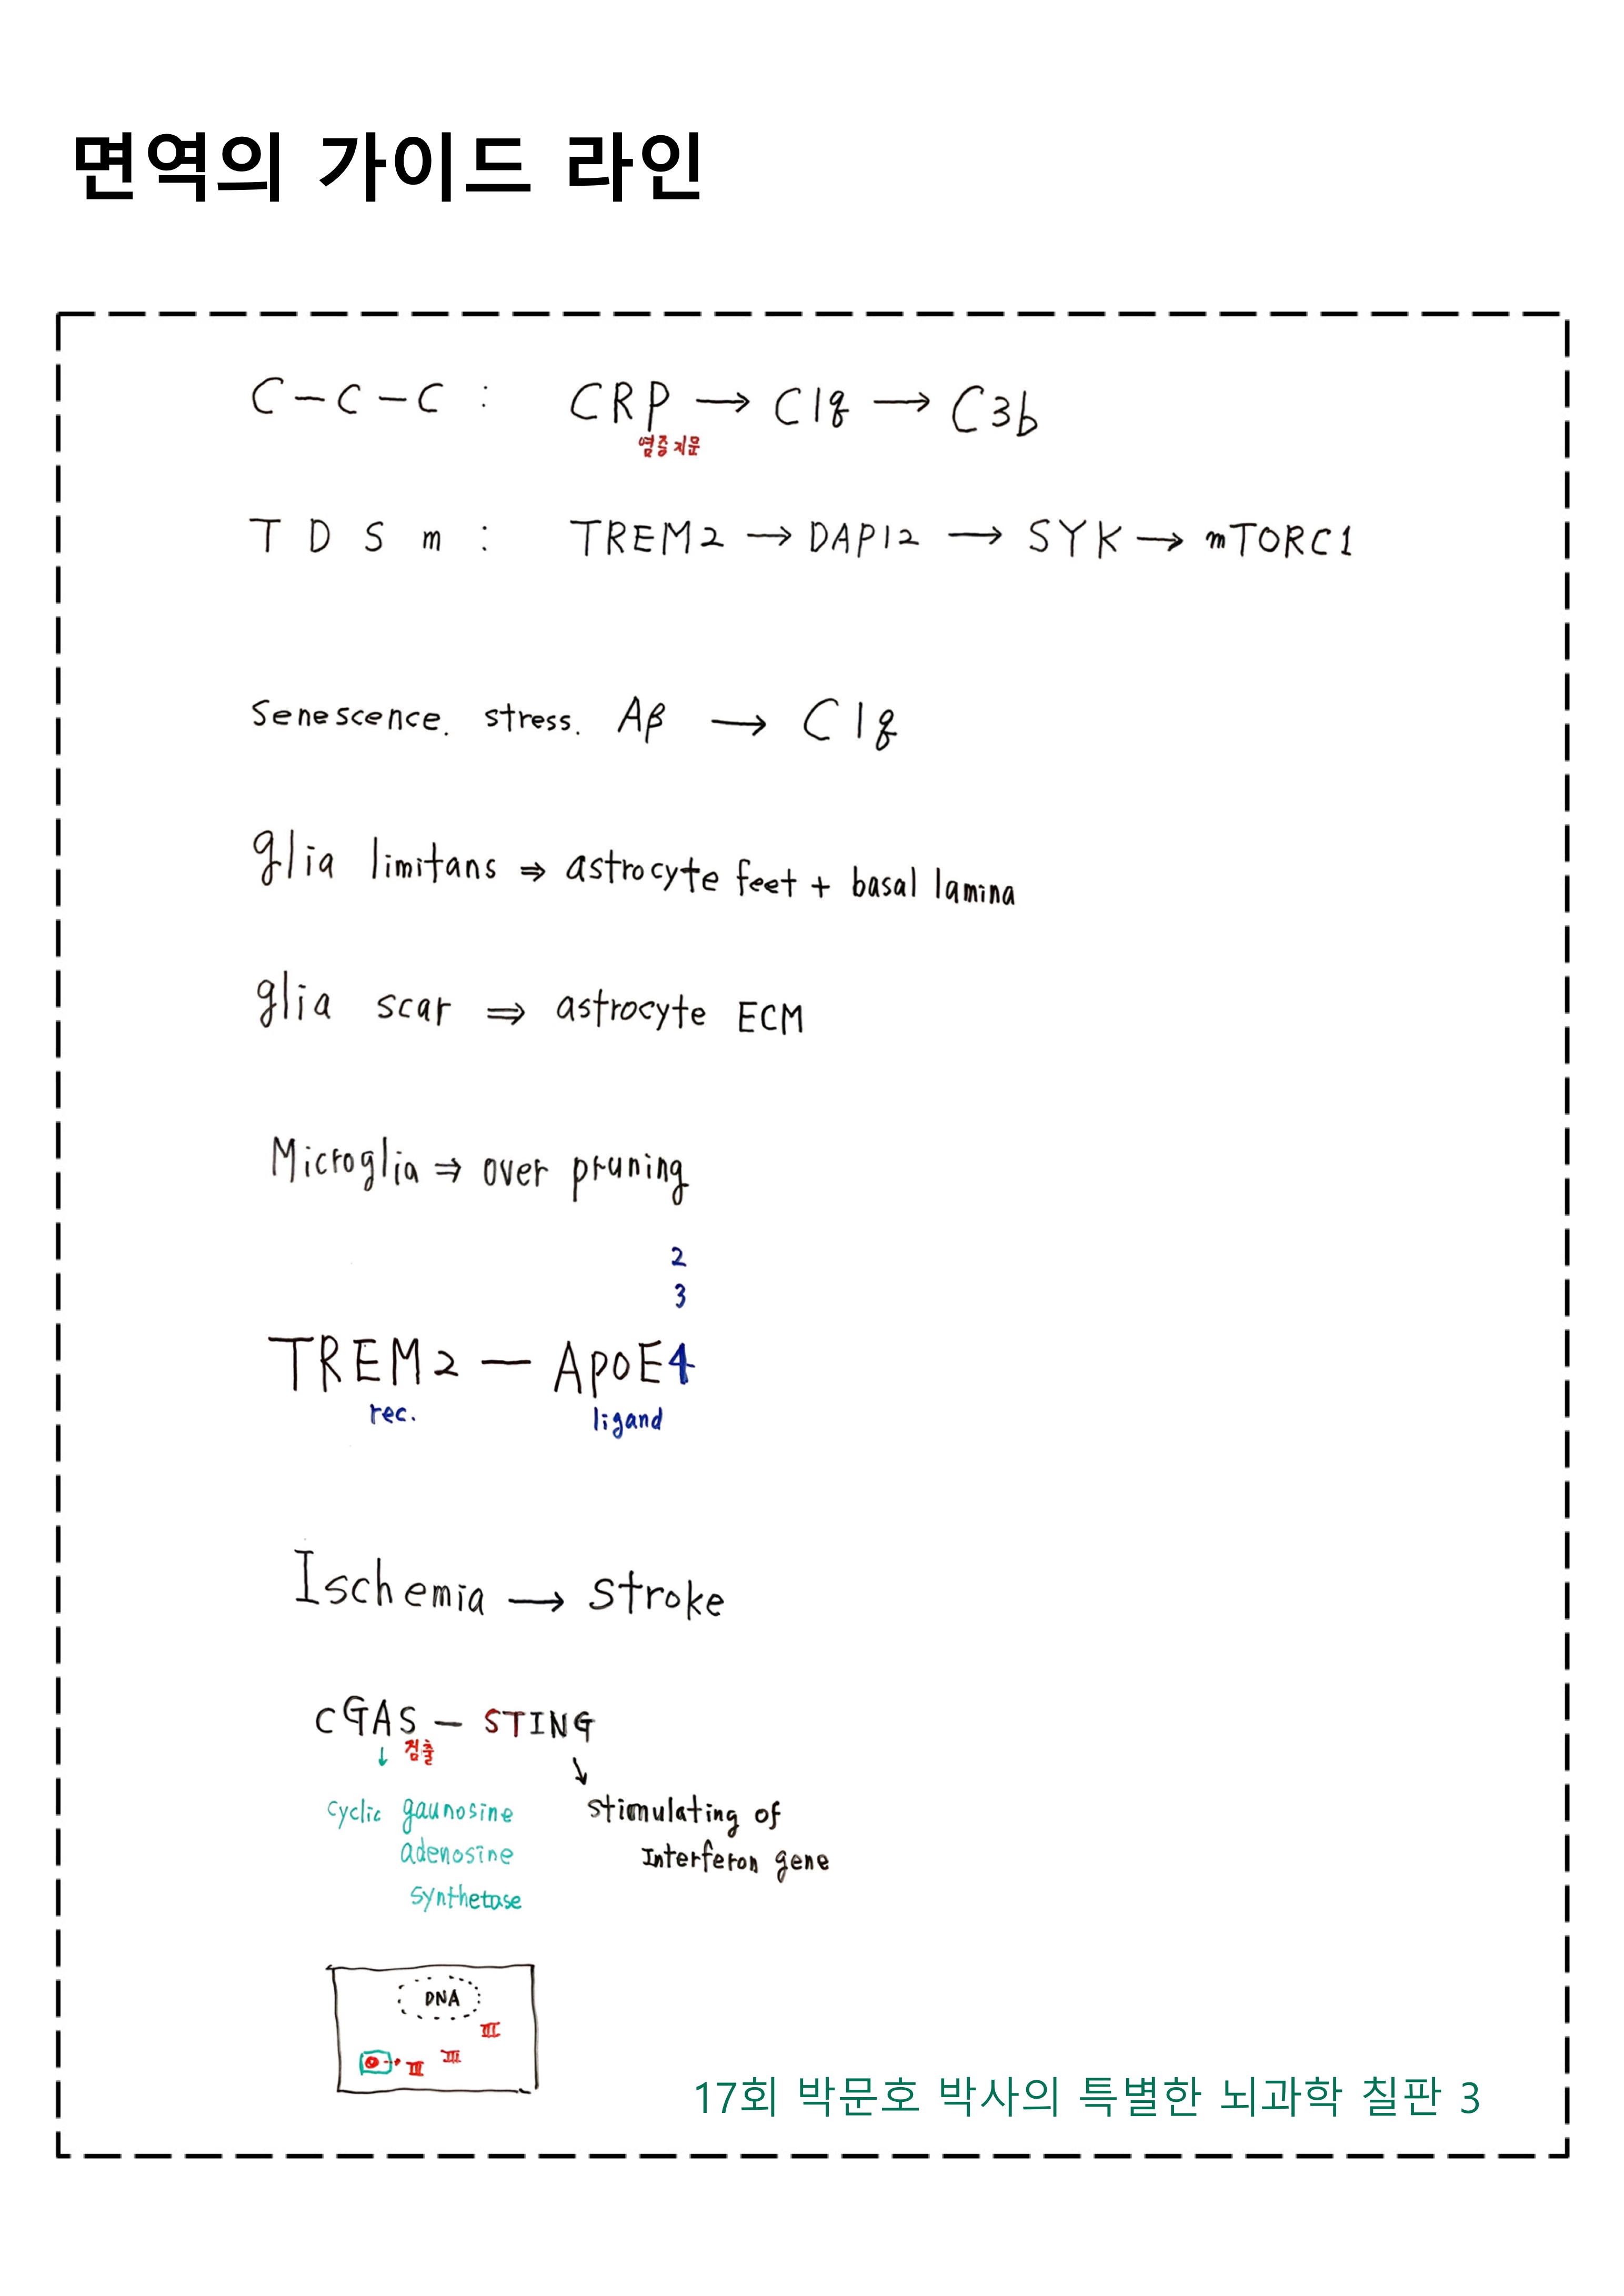 면역의 가이드 라인
C - C - C : CRP → C1q → C3b
염증지문
T D S m : TREM2 → DAP12 → SYK → mTORC1
Senescence. stress. Aβ → C1q
glia limitans ⇒ astrocyte feet + basal lamina
glia scar ⇒ astrocyte ECM
Microglia ⇒ over pruning
2
3
TREM2 — ApoE4
rec. ligand
Ischemia → stroke
cGAS - STING
↓ 검출
cyclic gaunosine
adenosine
synthetase
stimulating of
Interferon gene
DNA
III
III
III
17회 박문호 박사의 특별한 뇌과학 칠판 3